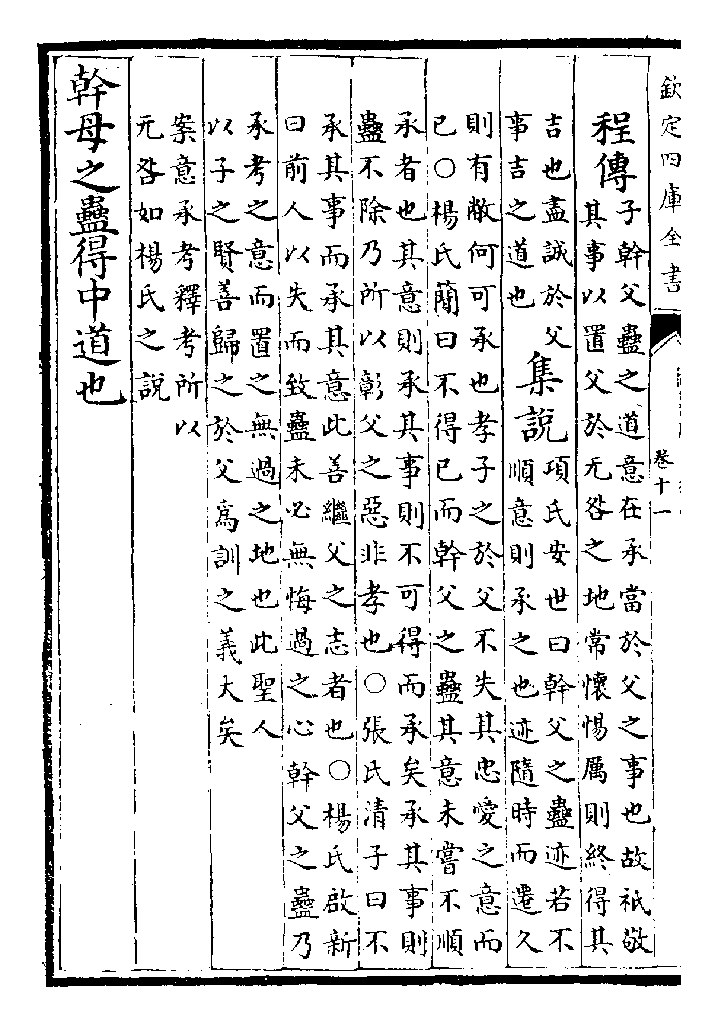 欽定四庫全書
卷十一
程傳
子幹父蠱之道意在承當於父之事也故祗敬
其事以置父於无咎之地常懷惕厲則終得其
吉也盡誠於父
事吉之道也
集說
項氏安世曰幹父之蠱迹若不
順意則承之也迹隨時而遷久
則有敝何可承也孝子之於父不失其忠愛之意而
已○楊氏簡曰不得已而幹父之蠱其意未嘗不順
承者也其意則承其事則不可得而承矣承其事則
蠱不除乃所以彰父之惡非孝也○張氏清子曰不
承其事而承其意此善繼父之志者也○楊氏啟新
曰前人以失而致蠱未必無悔過之心幹父之蠱乃
承考之意而置之無過之地也此聖人
以子之賢善歸之於父爲訓之義大矣
案意承考釋考所以
无咎如楊氏之說
幹母之蠱得中道也